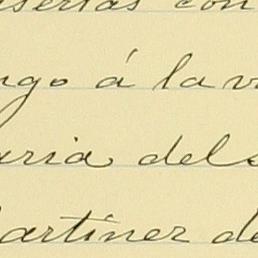 sertas con
ngo á la v
aria del
artinez de